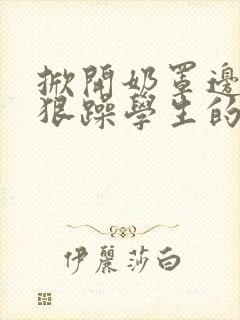 掀開奶罩邊
狠躁學生的
伊麗莎白